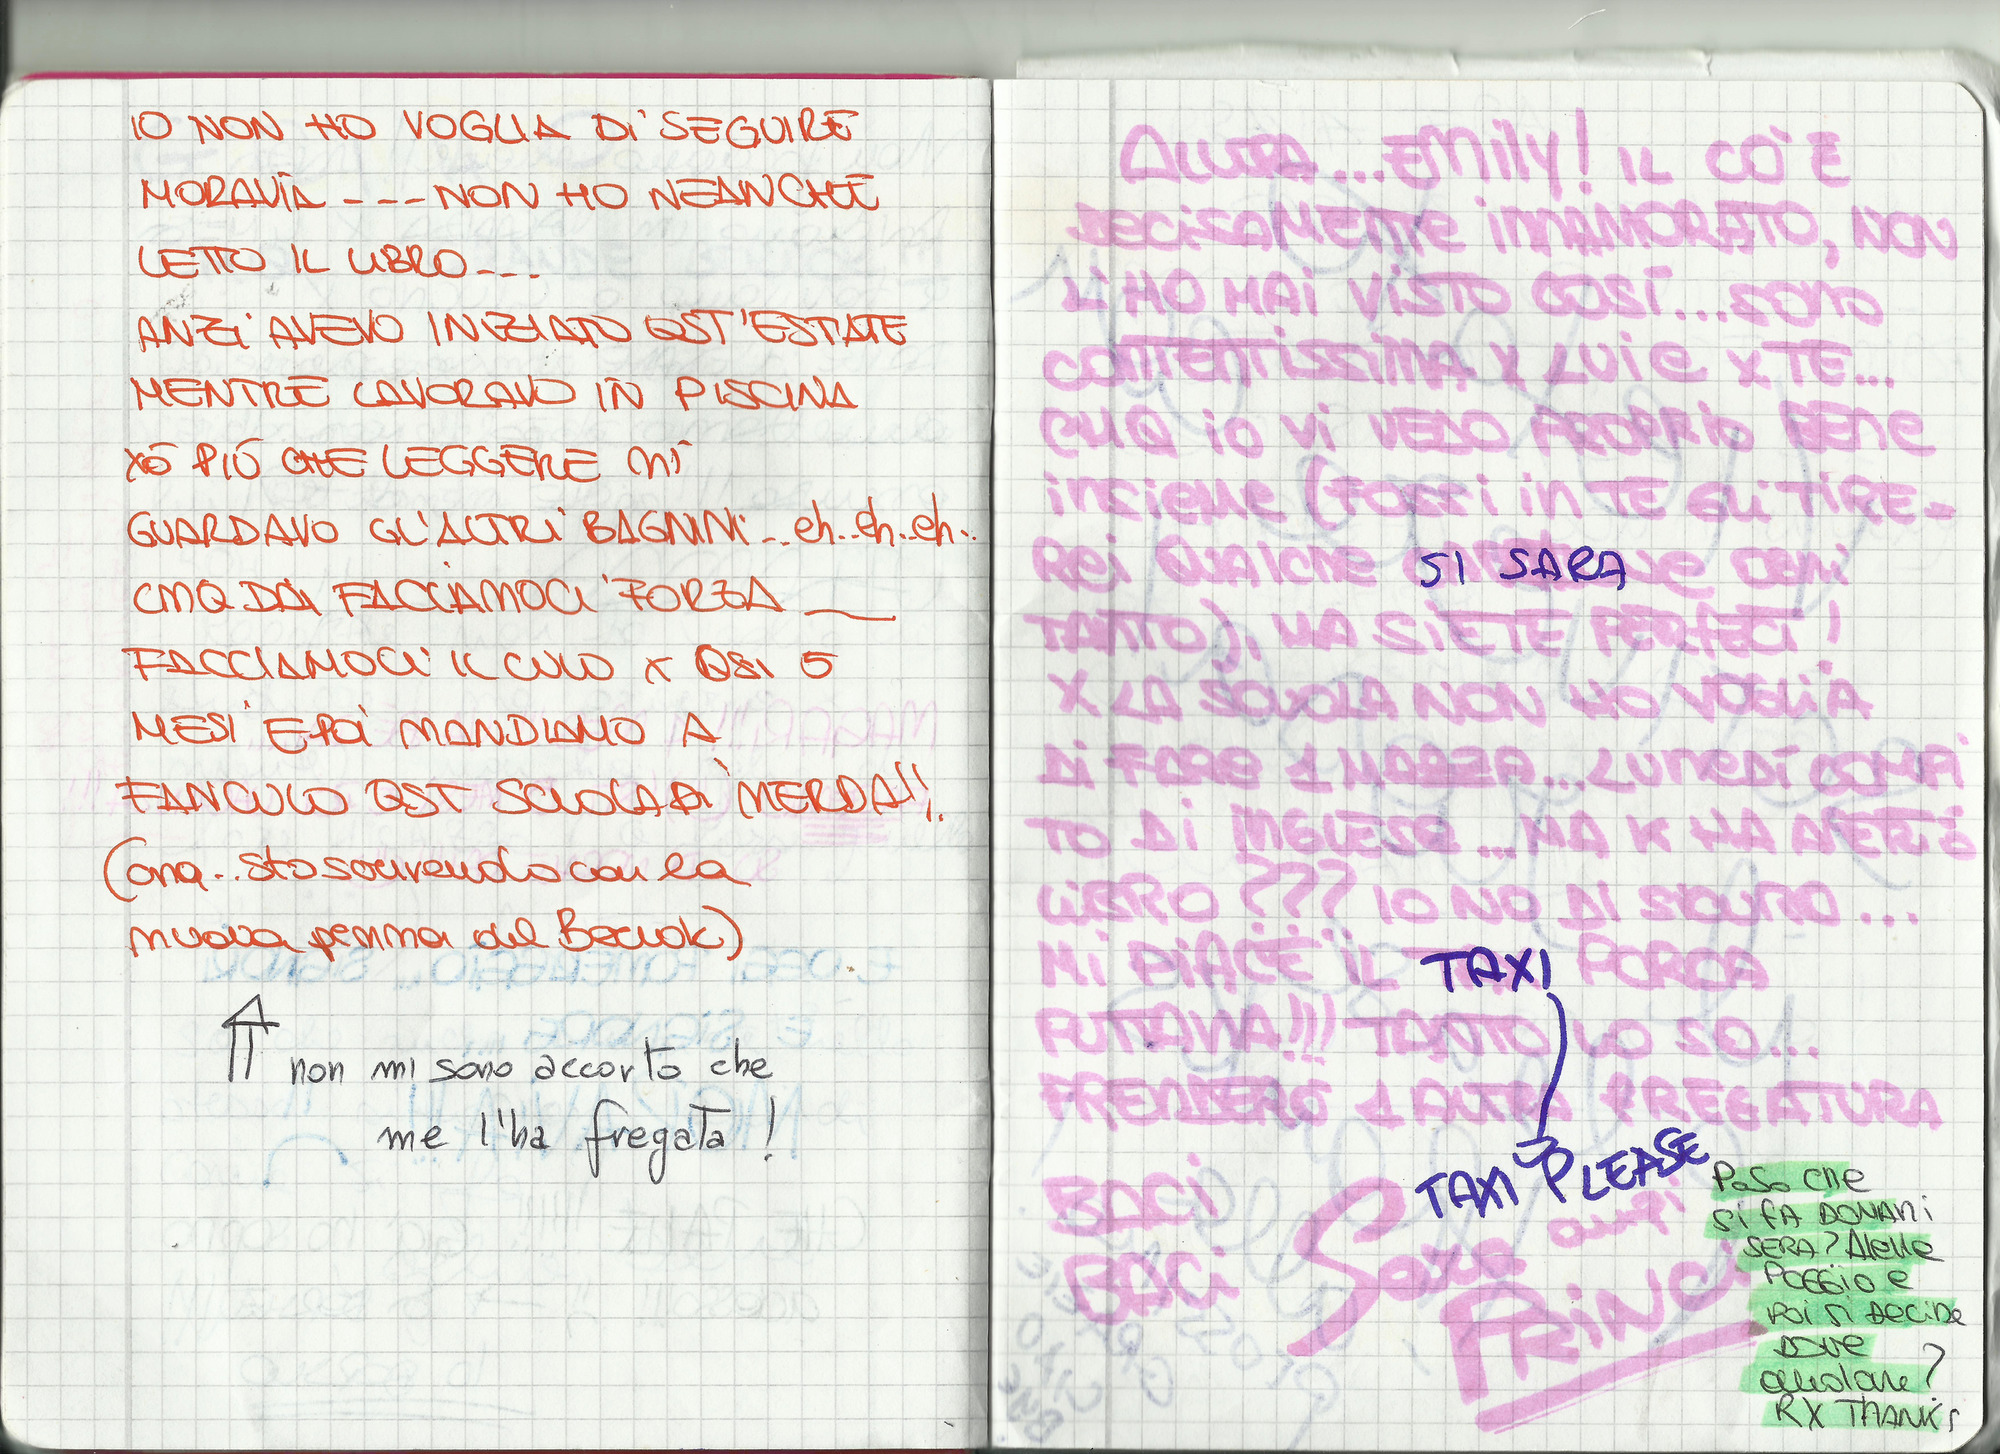 IO NON HO VOGLIA DI SEGUIRE
MORAVIA - - - NON HO NEANCHE
LETTO IL LIBRO - - -
ANZI AVEVO INIZIATO QST'ESTATE
MENTRE LAVORAVO IN PISCINA
XÒ PIÙ CHE LEGGERE MI
GUARDAVO GL'ALTRI BAGNINI...eh..eh..eh..
CMQ DAI FACCIAMOCI FORZA __
FACCIAMOCI IL CULO X QSI 5
MESI E POI MANDIAMO A
FANCULO QST SCUOLA DI MERDA!!
(cmq...sto scrivendo con la
nuova penna del Beciok)
non mi sono accorto che
me l'ha fregata!
ALLORA...EMILY! IL CO' È
DECISAMENTE INNAMORATO, NON
L'HO MAI VISTO COSÌ...SONO
CONTENTISSIMA X LUI E X TE...
CMQ IO VI VEDO PROPRIO BENE
INSIEME (FOSSI IN TE GLI TIRE-
REI QUALCHE OGNI
SI SARA
TANTO), MA SIETE PERFECT!
X LA SCUOLA NON HO VOGLIA
DI FARE 1 MAZZA...LUNEDÌ COMPI
TO DI INGLESE...MA K HA APERTO
LIBRO??? IO NO DI SICURO...
MI PIACE IL TAXI PORCA
PUTTANA!!! TANTO LO SO...
PRENDERÒ 1 ALTRA FREGATURA
TAXI PLEASE
BACI
BACI
Sara
PRINCI
Poso che
si fa DOMANI
SERA? Alelle
POGGIO e
POI SI DECIDE
DOVE
andare?
RX THANKS